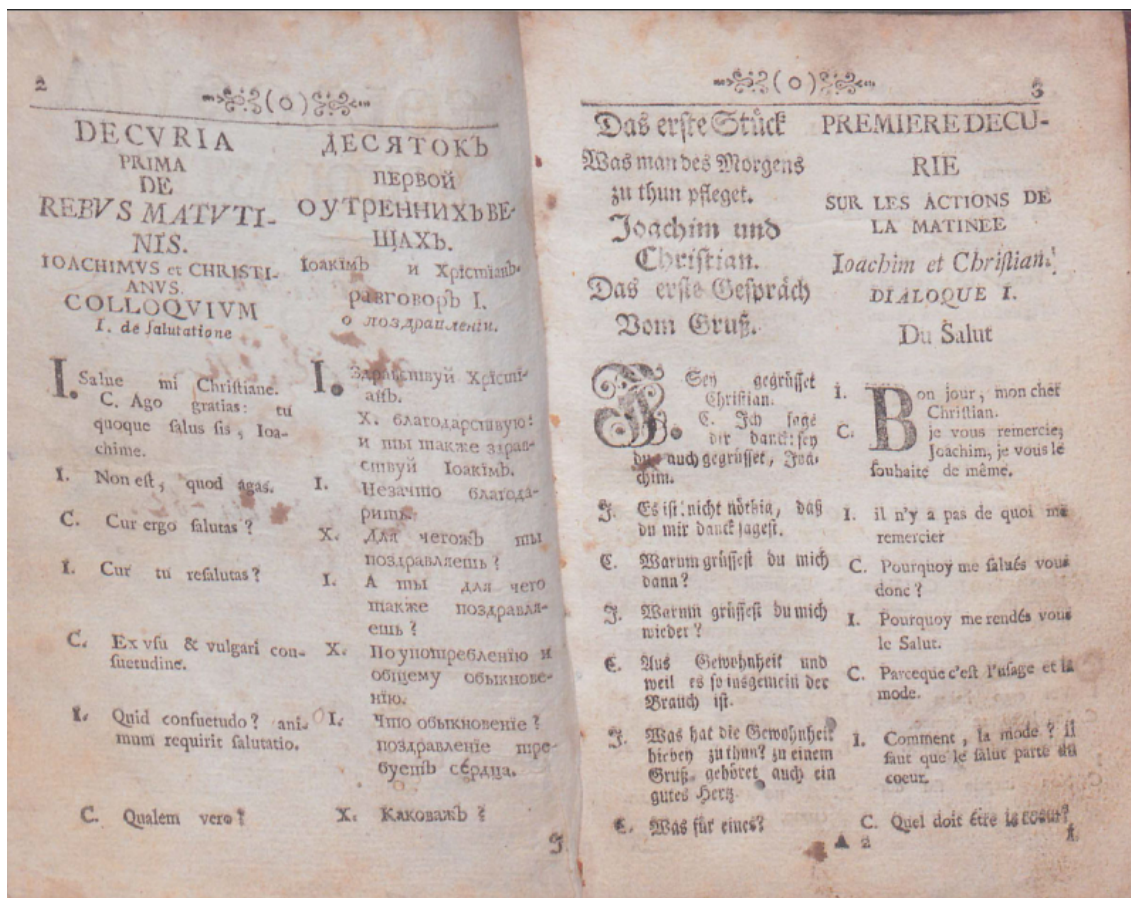 2
(o)
DECVRIA
PRIMA
DE
REBVS MATVTI-
NIS.
IOACHIMVS et CHRISTI-
ANVS.
COLLOQVIVM
I. de ſalutatione
I. Salue mi Chriſtiane.
C. Ago gratias: tu
quoque ſalus ſis, Ioa-
chime.
I. Non eſt, quod agas.
C. Cur ergo ſalutas?
I. Cur tu reſalutas?
C. Ex vſu & vulgari con-
ſuetudine.
I. Quid conſuetudo? ani-
mum requirit ſalutatio.
C. Qualem vero?
ДЕСЯТОКЪ
ПЕРВОЙ
О УТРЕННИХЪ ВЕ-
ЩАХЪ.
Іоакімъ и Хрістіанъ.
разговоръ I.
о поздравленіи.
I. Здравствуй Хрісті-
анъ.
Х. благодарствую:
и ты также здрав-
ствуй Іоакімъ.
I. Незачто благода-
рить.
Х. Для чегожъ ты
поздравляешь?
I. А ты для чего
также поздравля-
ешь?
Х. По употребленію и
общему обыкнове-
нію.
I. Что обыкновеніе?
поздравленіе тре-
буетъ сердца.
Х. Каковажъ?
J.
(o)
3
Das erſte Stück
Was man des Morgens
zu thun pfleget.
Joachim und
Chriſtian.
Das erſte Geſpräch
Vom Gruß.
J. Sey gegrüſſet
Chriſtian.
C. Ich ſage
dir danck: ſey
du auch gegrüſſet, Joa-
chim.
J. Es iſt nicht nöthig, daß
du mir danck ſageſt.
C. Warum grüſſeſt du mich
dann?
J. Warum grüſſeſt du mich
wieder?
C. Aus Gewohnheit und
weil es ſo insgemein der
Brauch iſt.
J. Was hat die Gewohnheit
hiebey zu thun? zu einem
Gruß gehöret auch ein
gutes Hertz.
C. Was für eines?
PREMIERE DECU-
RIE
SUR LES ACTIONS DE
LA MATINEE
Ioachim et Chriſtian.
DIALOQUE I.
Du Salut
I. Bon jour, mon cher
Chriſtian.
C. je vous remercie;
Joachim, je vous le
ſouhaite de même.
I. il n'y a pas de quoi me
remercier
C. Pourquoy me ſalués vous
donc?
I. Pourquoy me rendés vous
le Salut.
C. Parceque c'eſt l'uſage et la
mode.
I. Comment, la mode? il
faut que le ſalut parte du
coeur.
C. Quel doit étre le coeur?
A 2
I.